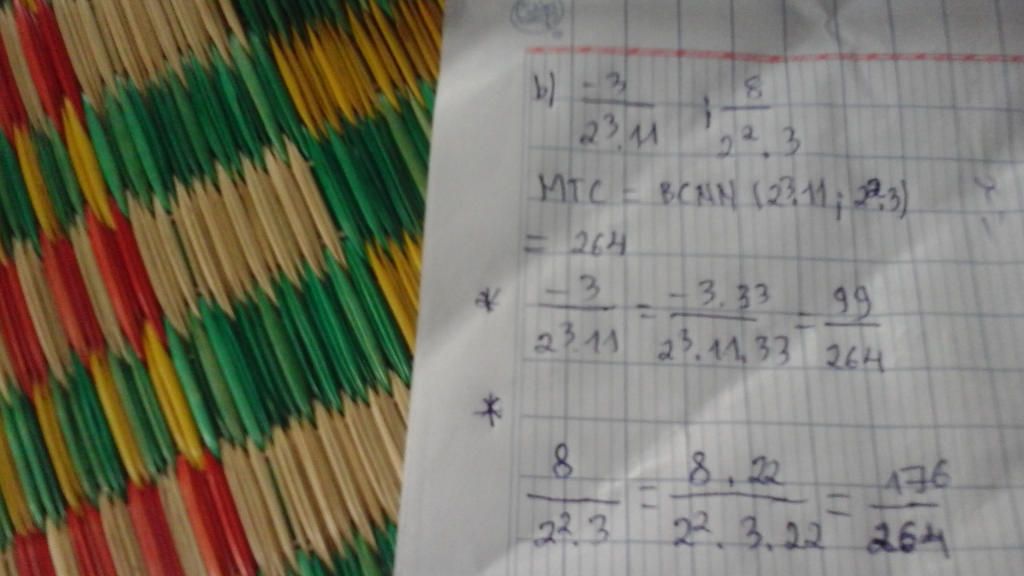 b) -3/2³.11 ; 8/2².3
MTC = BCNN (2³.11; 2².3)
= 264
* -3/2³.11 = -3.33/2³.11.33 = 99/264
*
8/2².3 = 8.22/2².3.22 = 176/264